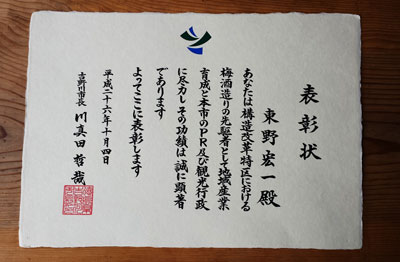 表彰状
東野宏一殿
あなたは構造改革特区における
梅酒造りの先駆者として地域産業
育成と本市のPR及び観光行政
に尽力しその功績は誠に顕著
であります
よってここに表彰します
平成二十六年十月四日
吉野川市長 川真田哲哉